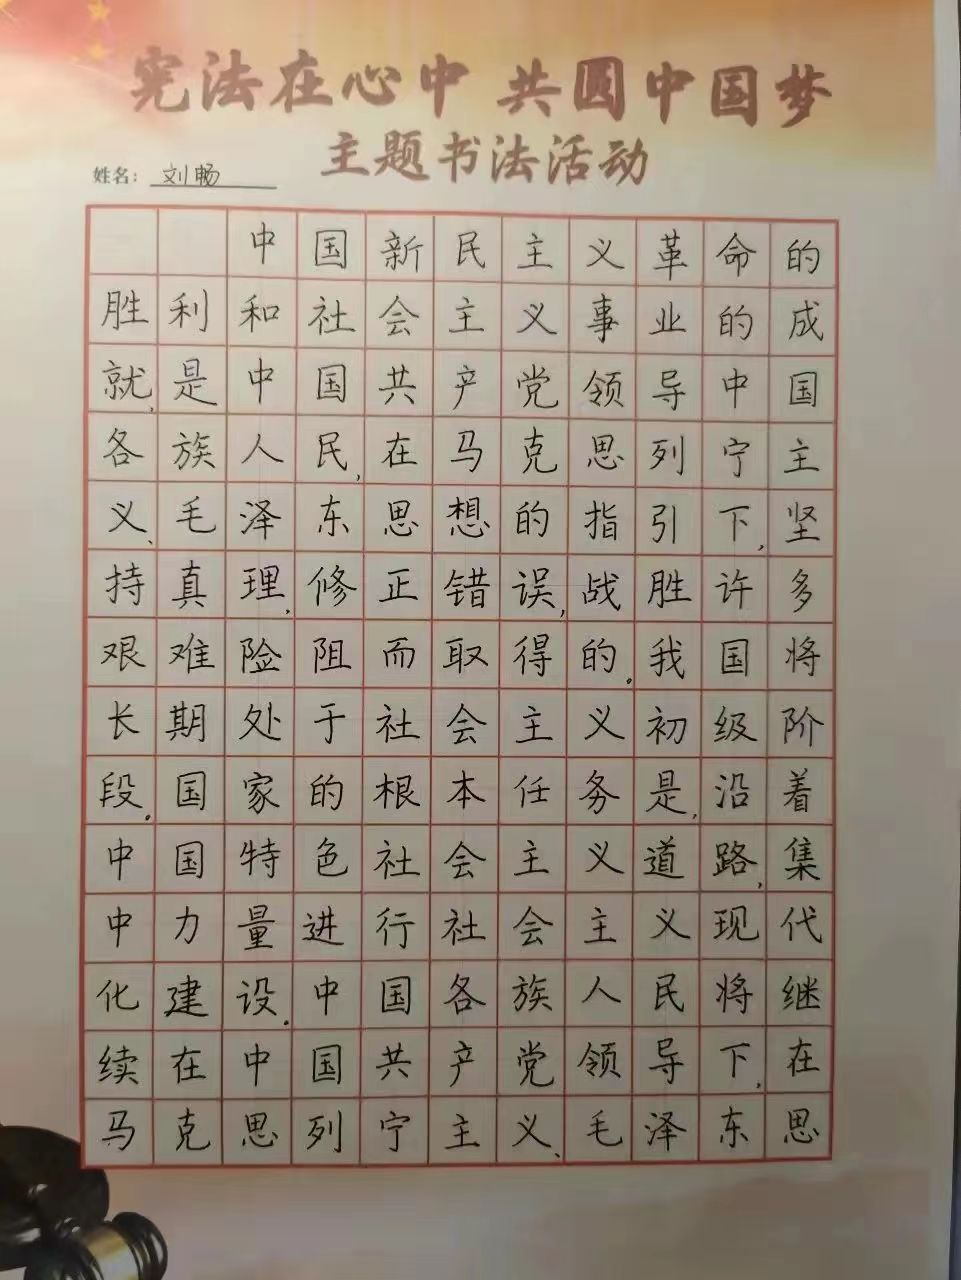 宪法在心中 共圆中国梦
主题书法活动
姓名：刘畅
中国新民主义革命的
胜利和社会主义事业的成
就，是中国共产党领导中国
各族人民，在马克思列宁主
义、毛泽东思想的指引下，坚
持真理，修正错误，战胜许多
艰难险阻而取得的。我国将
长期处于社会主义初级阶
段。国家的根本任务是，沿着
中国特色社会主义道路，集
中力量进行社会主义现代
化建设。中国各族人民将继
续在中国共产党领导下，在
马克思列宁主义、毛泽东思